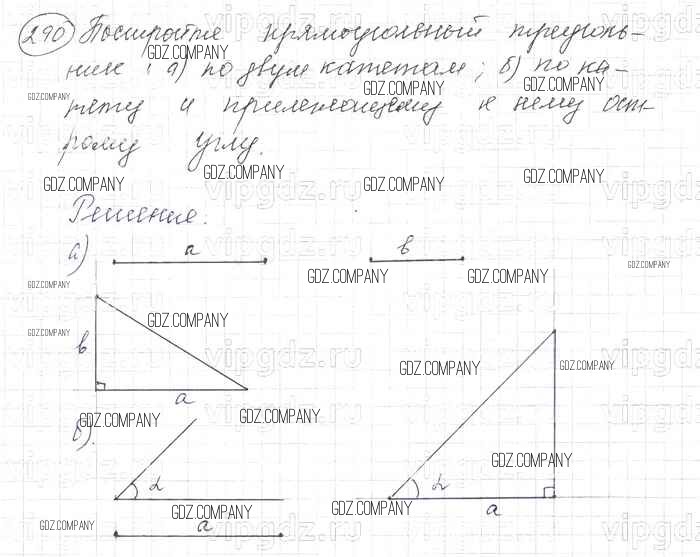 290 Постройте прямоугольный треуголь-
ник: а) по двум катетам; б) по ка-
тету и прилежащему к нему ост-
рому углу.
Решение.
а) a b
b
a
б). α α
a
a
GDZ.COMPANY
vipgdz.ru